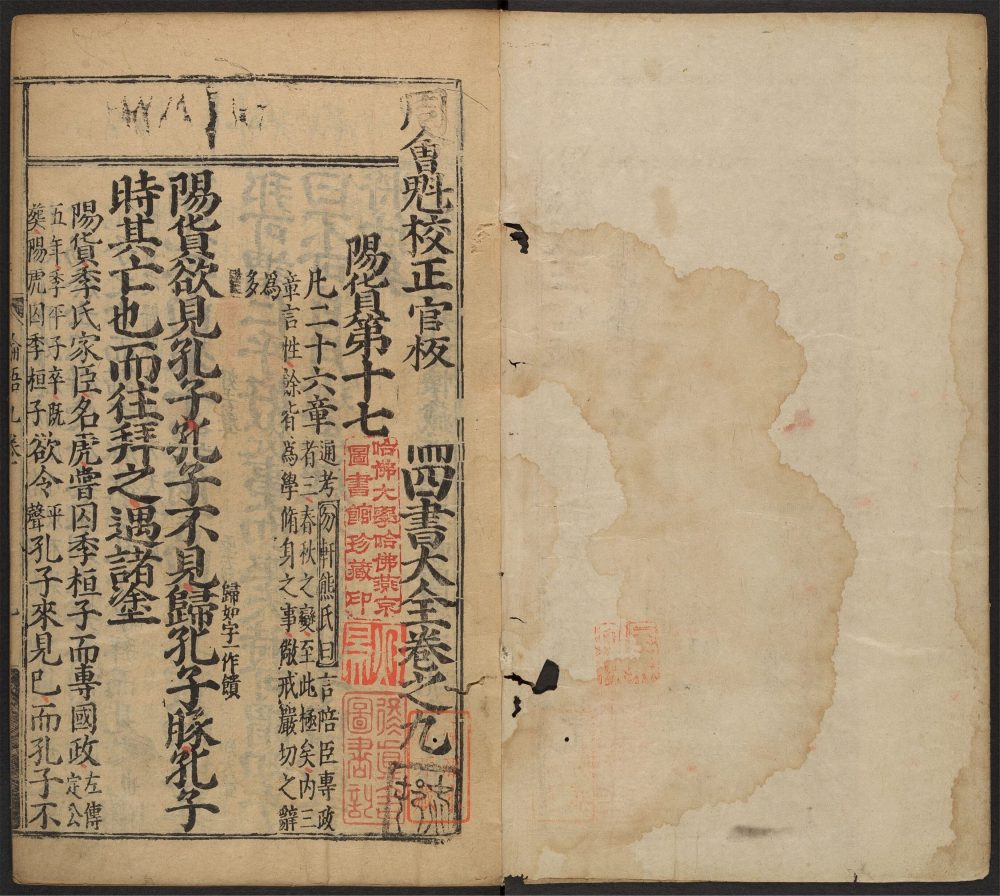 周會魁校正官板 四書大全卷之九
陽貨第十七
凡二十六章
通考勿軒熊氏曰言陪臣專政
者三春秋之變至此極矣内三
章言性餘皆為學脩身之事儆戒嚴切之辭
為多
陽貨欲見孔子孔子不見歸孔子豚孔子
歸如字一作饋
時其亡也而往拜之遇諸塗
陽貨季氏家臣名虎嘗囚季桓子而專國政
左傳
定公
五年季平子卒既
葬陽虎囚季桓子
欲令平聲孔子來見已而孔子不
哈佛大學哈佛燕京
圖書館珍藏印